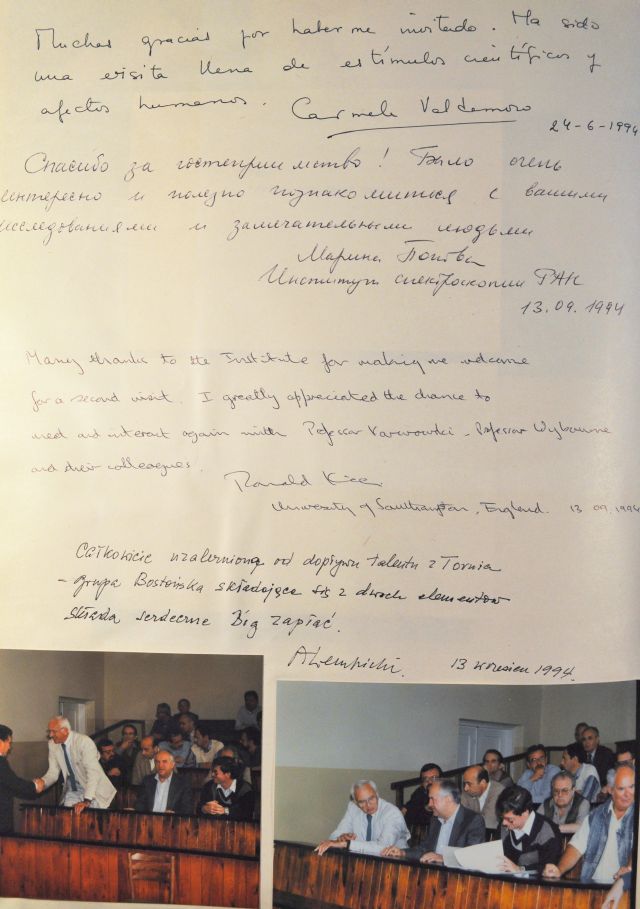 Muchas gracias por haberme invitado. Ha sido
una visita llena de estímulos científicos y
afectos humanos. Carmela Valdemoro
24-6-1994
Спасибо за гостеприимство! Было очень
интересно и полезно познакомиться с вашими
исследованиями и замечательными людьми
Марина
Институт спектроскопии РАН
13.09.1994
Many thanks to the Institute for making me welcome
for a second visit. I greatly appreciated the chance to
meet and interact again with Professor Karwowski, Professor Wybourne
and their colleagues.
Ronald
University of Southampton, England. 13 09.1994
Całkowicie uzależniona od dopływu talentu z Torunia
- grupa Bostońska składająca się z dwóch elementów
składa serdeczne Bóg zapłać.
A Lempicki. 13 wrzesień 1994.